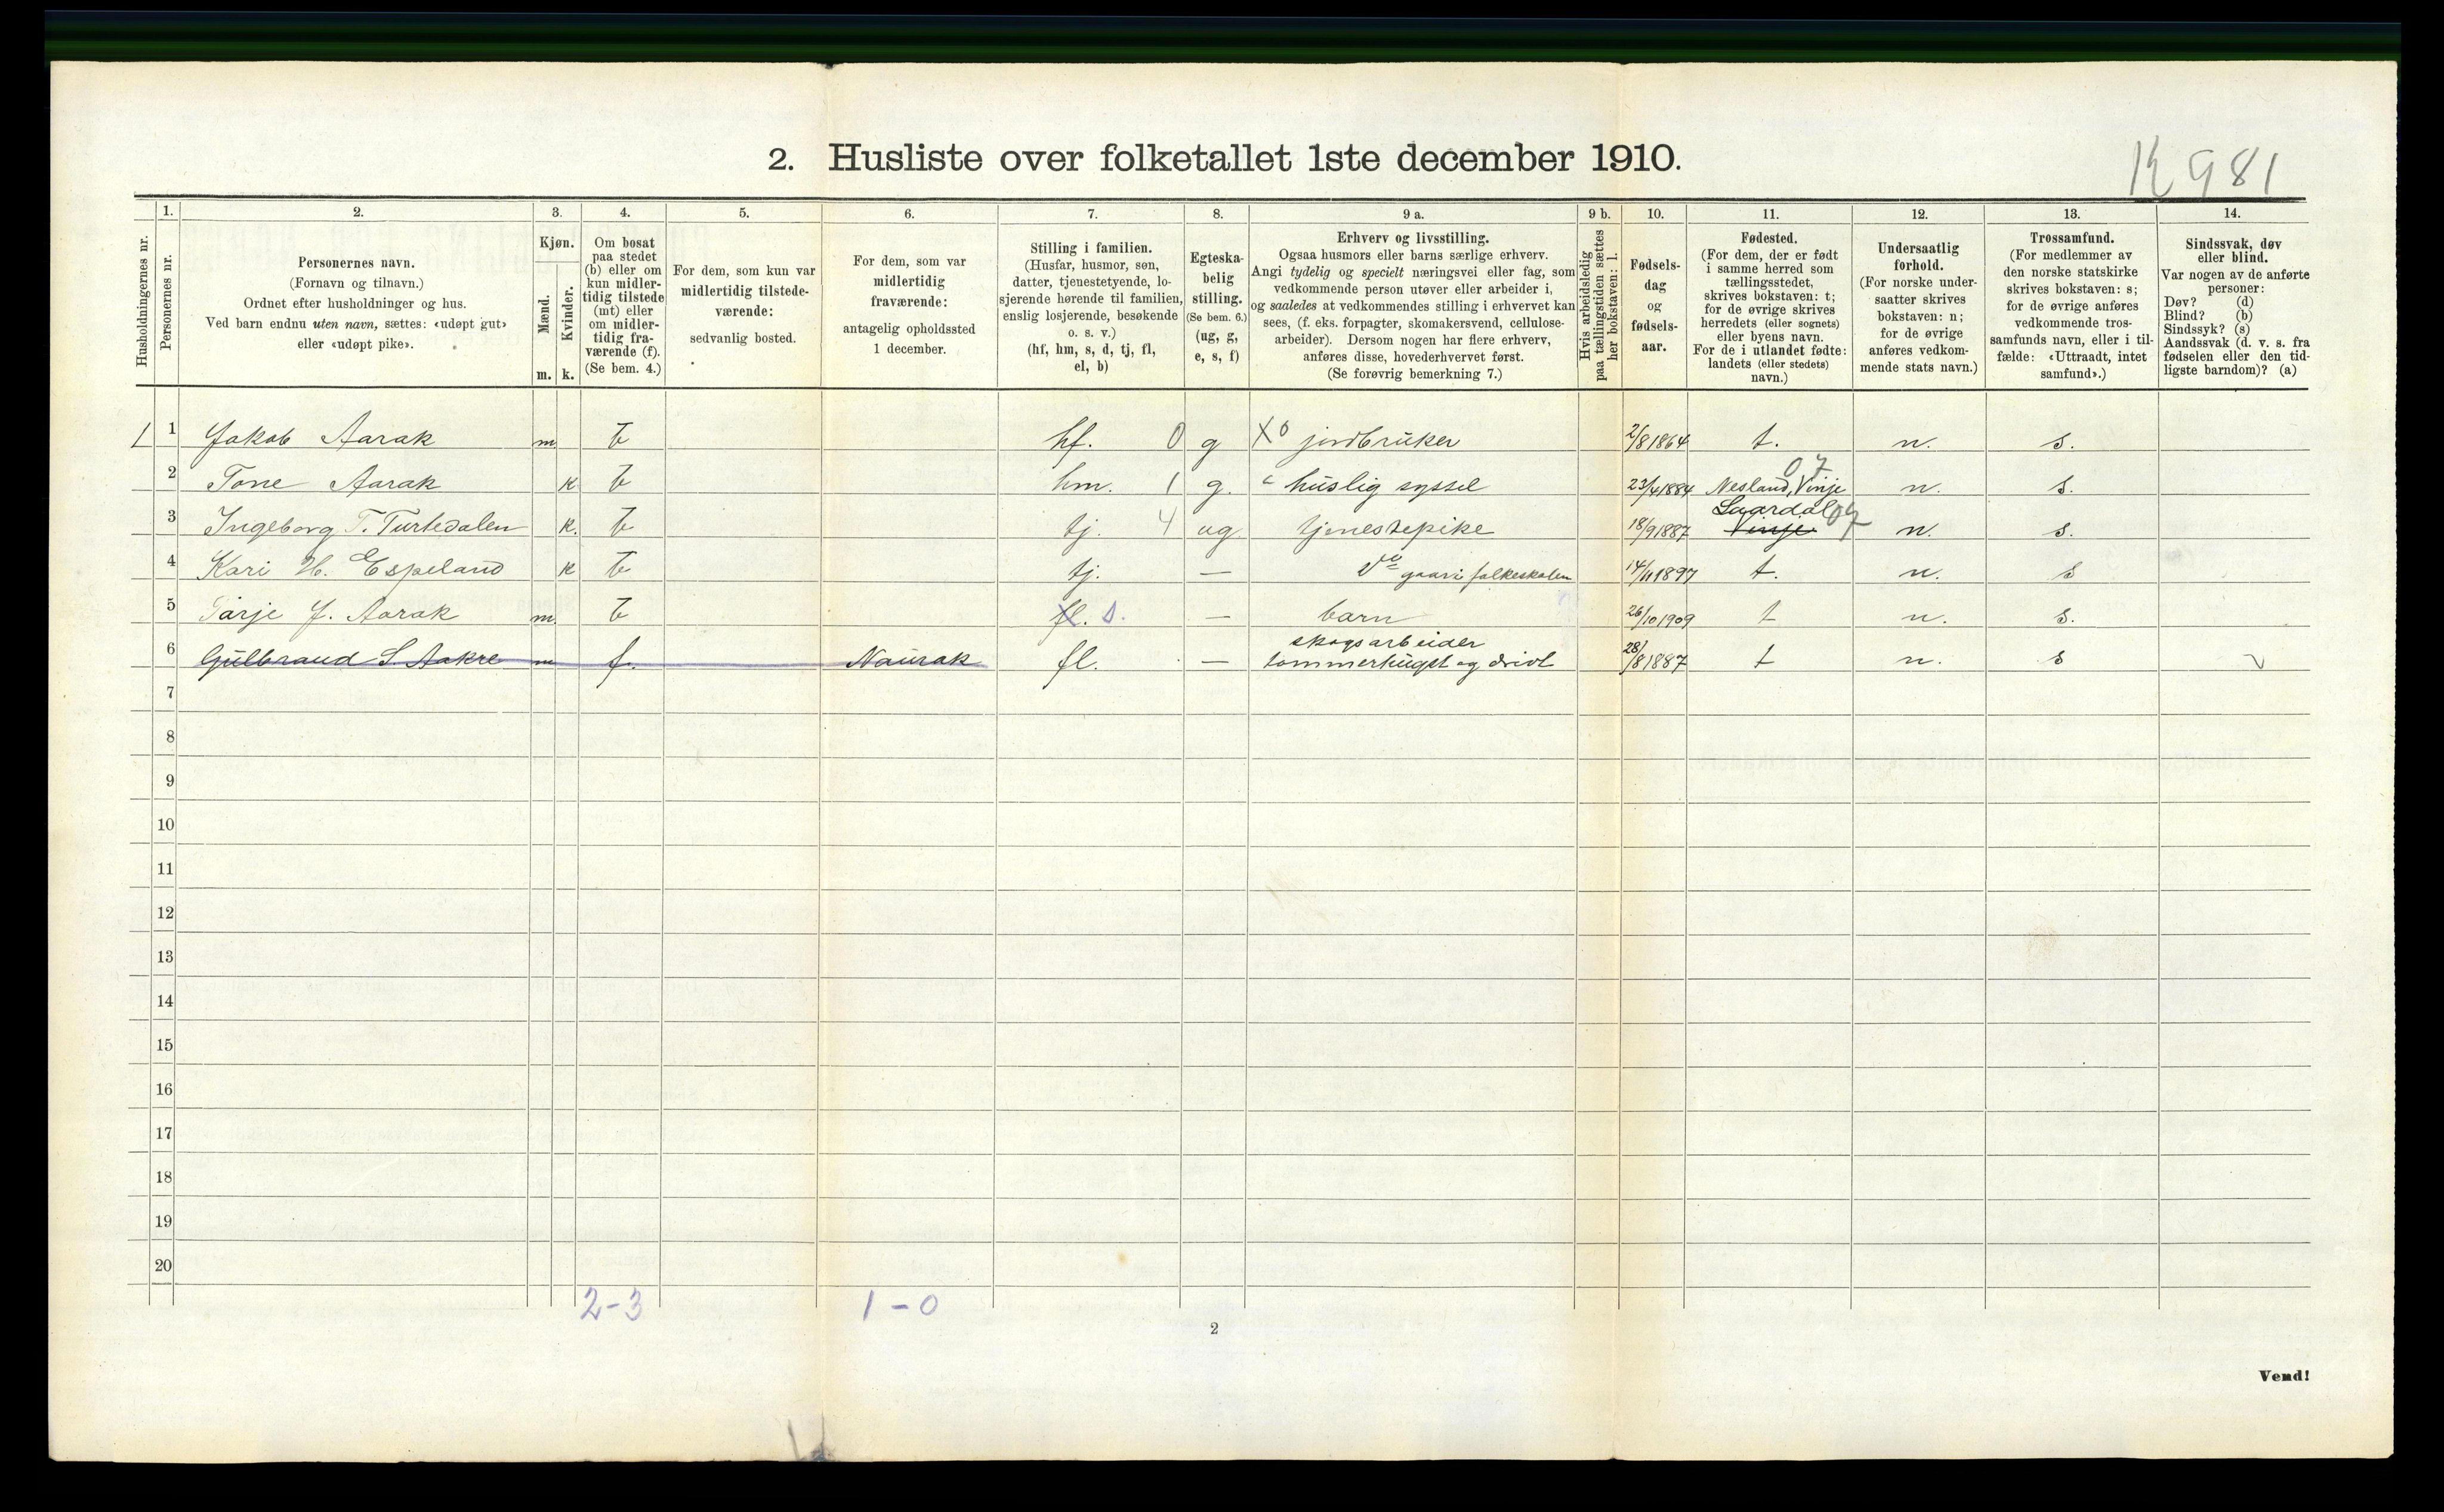 2. Husliste over folketallet 1ste december 1910.
K 981
Husholdningernes nr.
1.
Personernes nr.
2.
Personernes navn.
(Fornavn og tilnavn.)
Ordnet efter husholdninger og hus.
Ved barn endnu uten navn, sættes: «udøpt gut»
eller «udøpt pike».
3.
Kjøn.
Mænd.
Kvinder.
m. k.
4.
Om bosat
paa stedet
(b) eller om
kun midler-
tidig tilstede
(mt) eller
om midler-
tidig fra-
værende (f).
(Se bem. 4.)
5.
For dem, som kun var
midlertidig tilstede-
værende:
sedvanlig bosted.
6.
For dem, som var
midlertidig
fraværende:
antagelig opholdssted
1 december.
7.
Stilling i familien.
(Husfar, husmor, søn,
datter, tjenestetyende, lo-
sjerende hørende til familien,
enslig losjerende, besøkende
o. s. v.)
(hf, hm, s, d, tj, fl,
el, b)
8.
Egteska-
belig
stilling.
(Se bem. 6.)
(ug, g,
e, s, f)
9 a.
Erhverv og livsstilling.
Ogsaa husmors eller barns særlige erhverv.
Angi tydelig og specielt næringsvei eller fag, som
vedkommende person utøver eller arbeider i,
og saaledes at vedkommendes stilling i erhvervet kan
sees, (f. eks. forpagter, skomakersvend, cellulose-
arbeider). Dersom nogen har flere erhverv,
anføres disse, hovederhvervet først.
(Se forøvrig bemerkning 7.)
9 b.
Hvis arbeidsledig
paa tællingstiden sættes
her bokstaven: l.
10.
Fødsels-
dag
og
fødsels-
aar.
11.
Fødested.
(For dem, der er født
i samme herred som
tællingsstedet,
skrives bokstaven: t;
for de øvrige skrives
herredets (eller sognets)
eller byens navn.
For de i utlandet fødte:
landets (eller stedets)
navn.)
12.
Undersaatlig
forhold.
(For norske under-
saatter skrives
bokstaven: n;
for de øvrige
anføres vedkom-
mende stats navn.)
13.
Trossamfund.
(For medlemmer av
den norske statskirke
skrives bokstaven: s;
for de øvrige anføres
vedkommende tros-
samfunds navn, eller i til-
fælde: «Uttraadt, intet
samfund».)
14.
Sindssvak, døv
eller blind.
Var nogen av de anførte
personer:
Døv? (d)
Blind? (b)
Sindssyk? (s)
Aandssvak (d. v. s. fra
fødselen eller den tid-
ligste barndom)? (a)
1 1 Jakob Aarak m b hf. 0 g X0 jordbruker 2/8 1864 t. n. s.
07
2 Tone Aarak k b hm. 1 g. huslig syssel 23/4 1884 Nesland, Vinje n. s.
Laardal 07
3 Ingeborg T. Turtedalen k. b tj. 4 ug. tjenestepike 18/9 1887 Vinje n. s.
4 Kari H. Espeland k b tj. — gaar i folkeskolen 1897 t. n. s
5 Tarje J. Aarak m. b fl. s. — barn 26/10 1909 t n. s.
skogsarbeider
6 Gulbrand S. Aakre m f. Naurak fl. — tømmerhugst og drivt 28/8 1887 t n. s v
7
8
9
10
11
12
13
14
15
16
17
18
19
20
2-3 1-0
2
Vend!